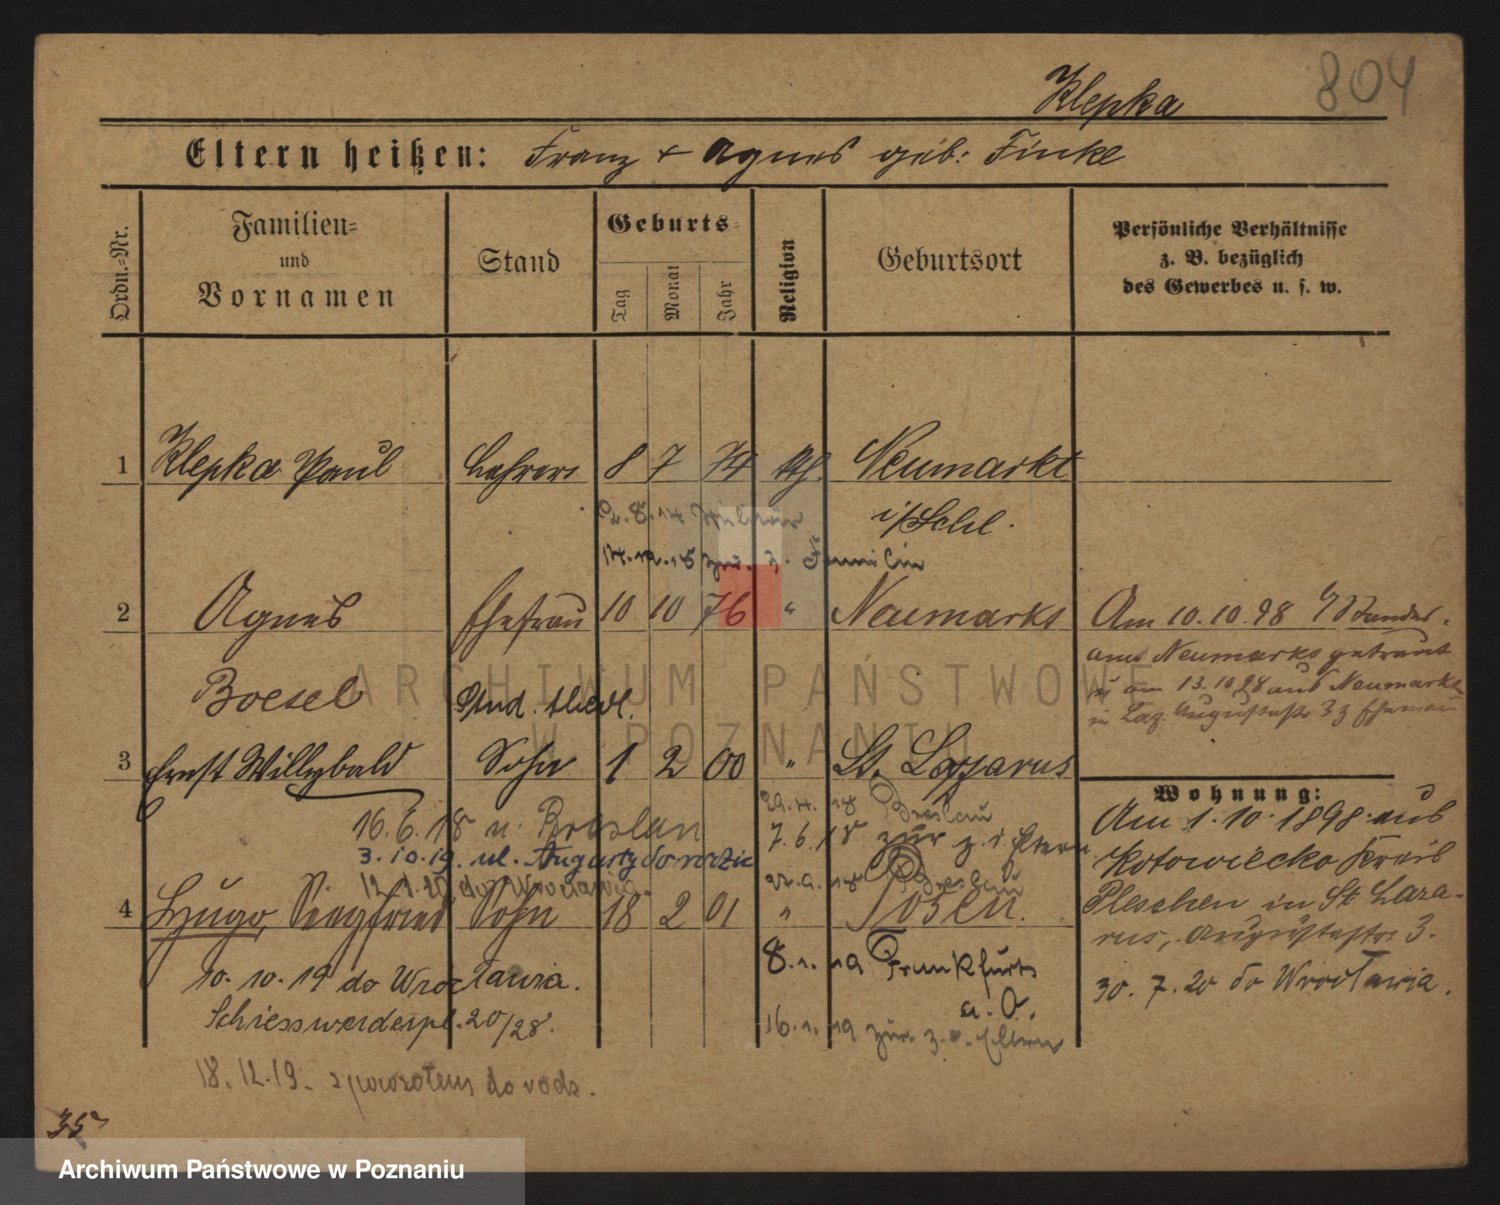 804
Klepka
Eltern heißen: Franz + Agnes geb: Finke
Ordn.-Nr.
Familien-
und
Vornamen
Stand
Geburts-
Tag
Monat
Jahr
Religion
Geburtsort
Persönliche Verhältnisse
z. B. bezüglich
des Gewerbes u. s. w.
1 Klepka Paul Lehrer 8 7 74 kth. Neumarkt
i/Schl.
2.8.14
14.12.18 zur. z. Familie
2 Agnes Ehefrau 10 10 76 " Neumarkt
Boesel
Am 10.10.98 Standes-
amt Neumarkt getraut
u am 13.10.98 aus Neumarkt
in Laz. Augustastr 3 z Ehemann
Stud. Med.
3 Ernst Willybald Sohn 1 2 00 " St. Lazarus
29.4.18 Breslau
16.6.18 n. Breslau
7.6.18 zur z. d. Eltern
3.10.19. ul. Augusty do rodzic
12.1.20 do Wrocławia.
22.9.18 Breslau
4 Hugo, Siegfried Sohn 18 2 01 " Posen.
10.10.19 do Wrocławia.
Schiesswerderpl. 20/28.
8.1.19 Frankfurt
a. O.
16.1.19 zur. z. d. Eltern
18.12.19 - z powrotem do rodz.
Wohnung:
Am 1.10.1898 aus
Kotowiecko Kreis
Pleschen in St Laza-
rus, Augustastr 3.
30.7.20 do Wrocławia.
35
ARCHIWUM PAŃSTWOWE
W POZNANIU
Archiwum Państwowe w Poznaniu